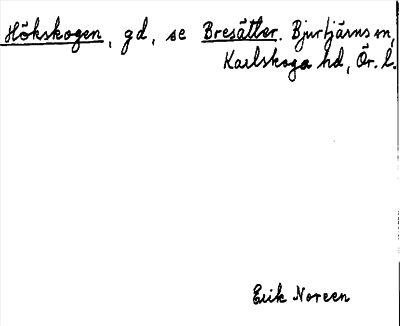 Hökskogen, gd, se Bresätter. Bjurtjärns sn,
Karlskoga hd, Ör. l.
Erik Noreen